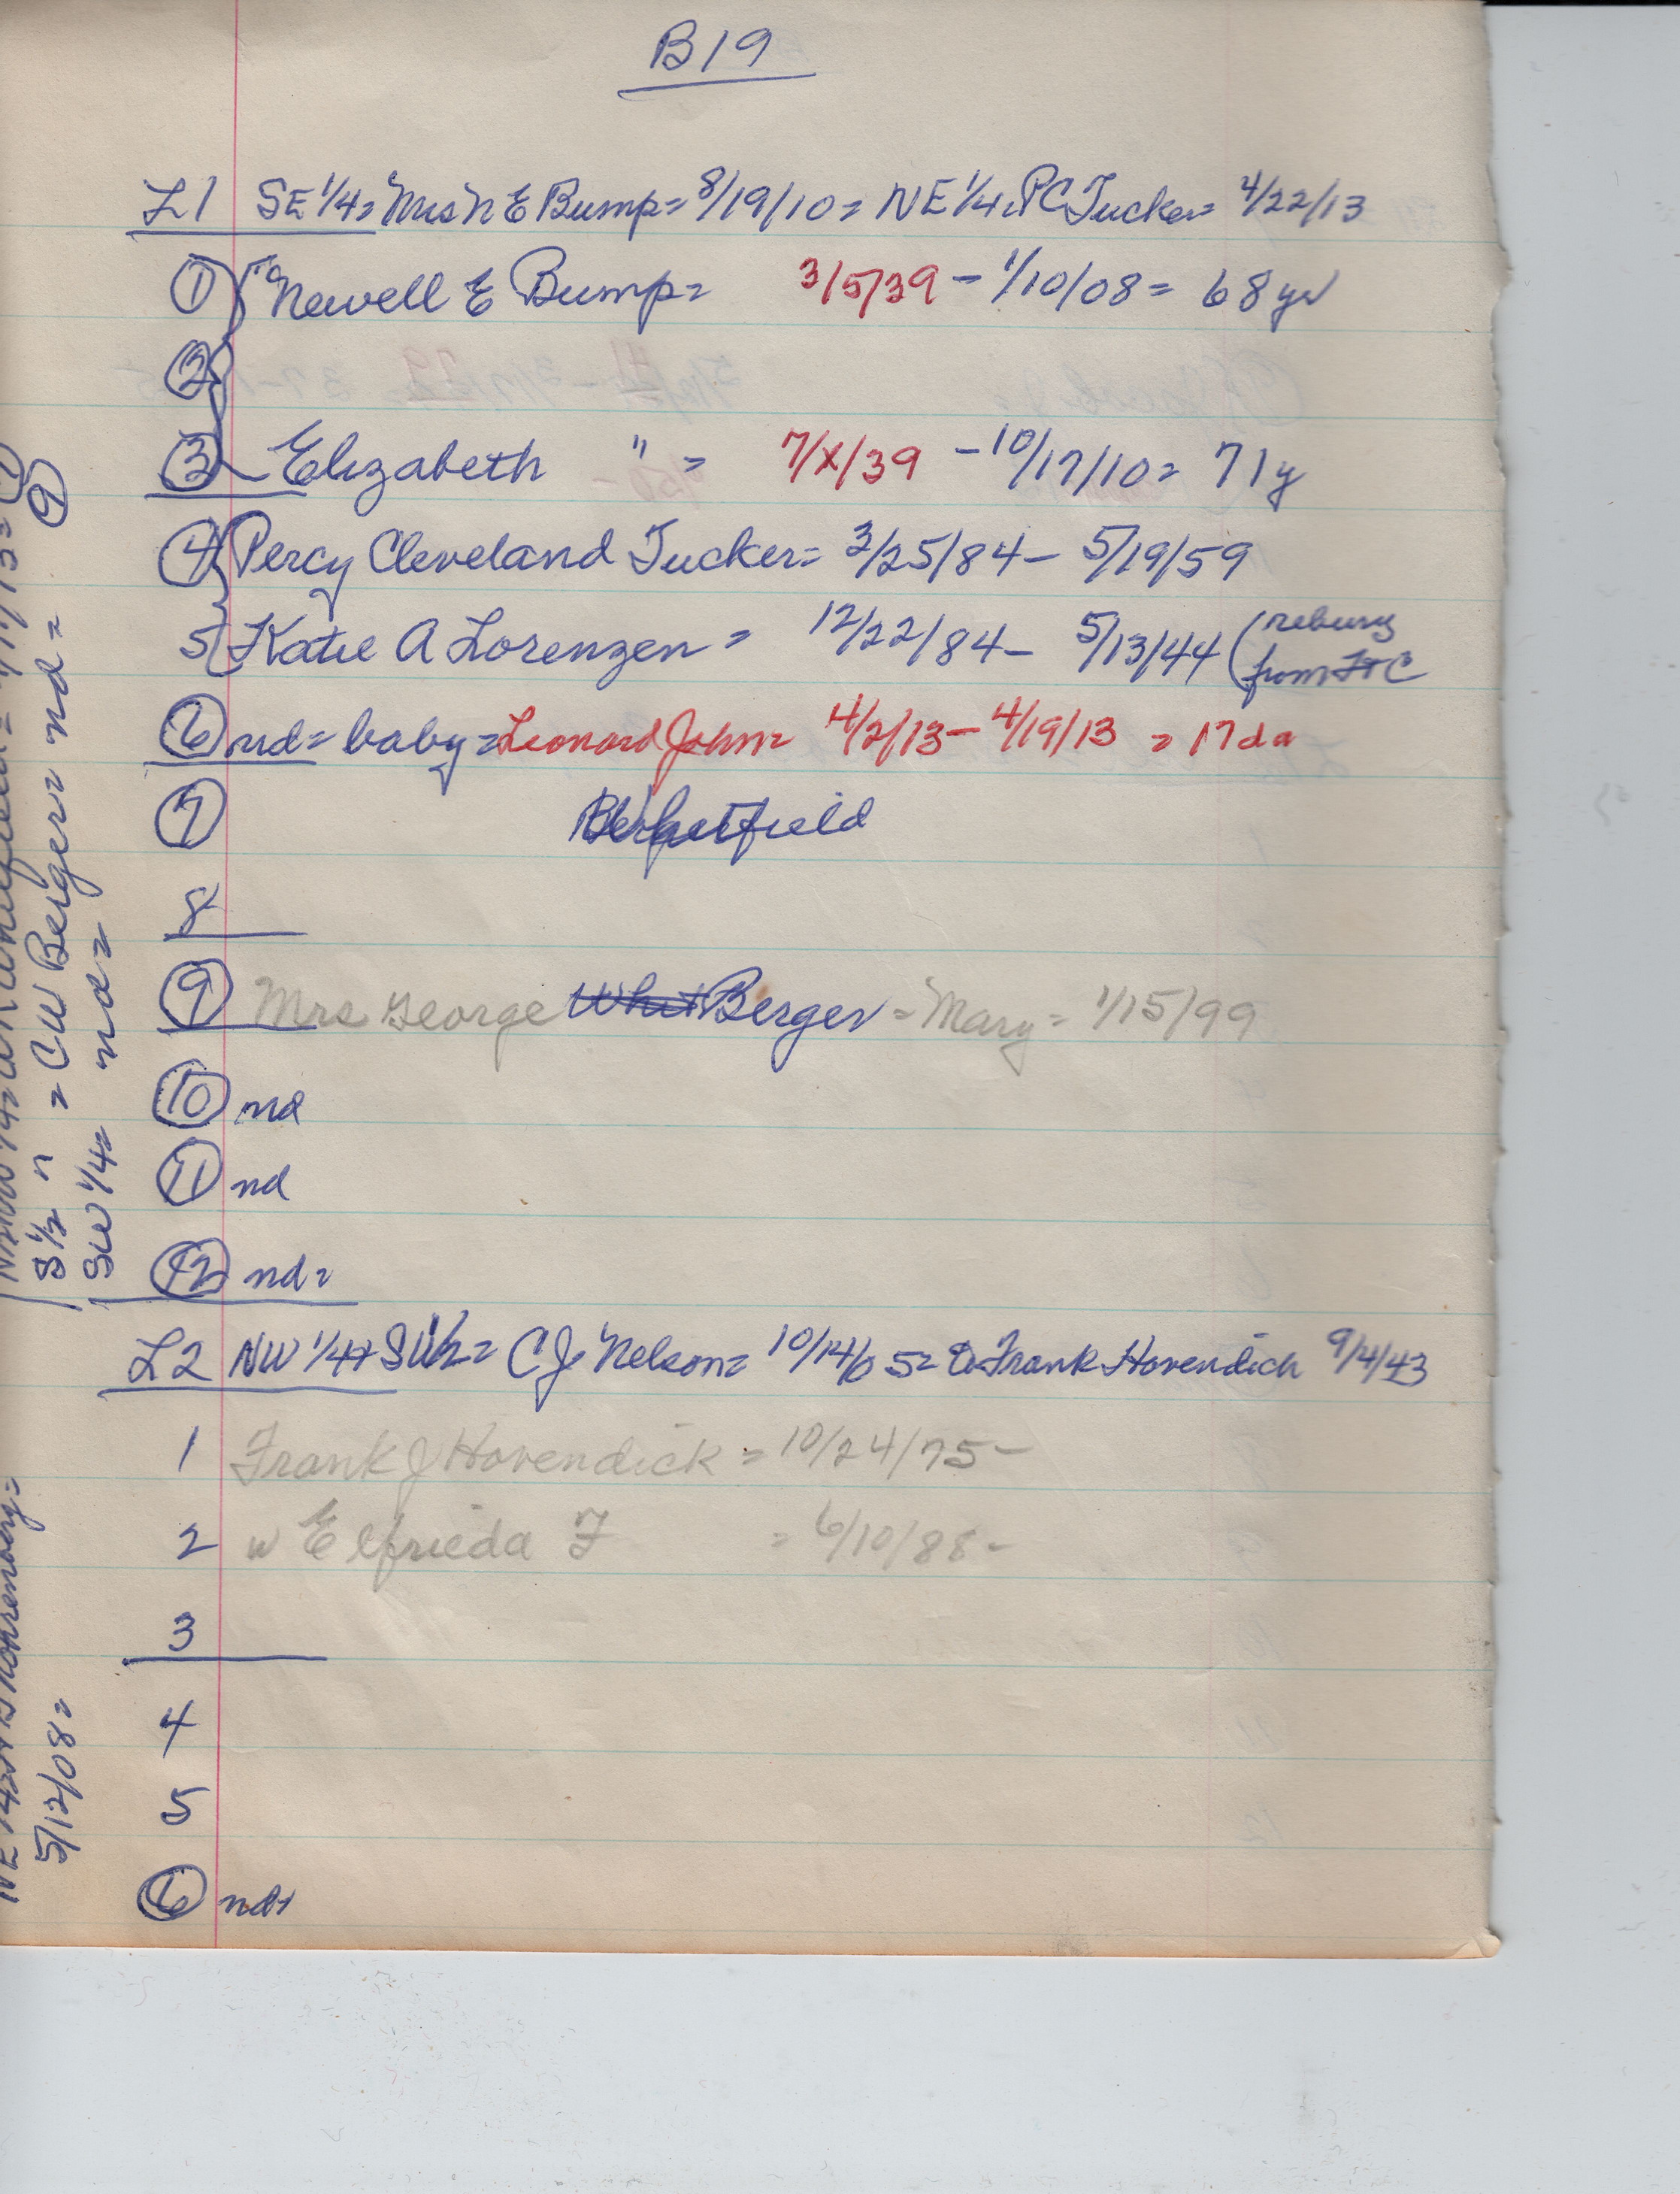 B19
L1 SE 1/4 = Mrs N E Bump = 8/19/10 = NE 1/4 = PC Tucker = 4/22/13
1 Newell E Bump = 3/5/39 - 1/10/08 = 68 yr
2
3 Elizabeth " = 7/x/39 - 10/17/10 = 71y
4 Percy Cleveland Tucker = 3/25/84 - 5/19/59
5 Katie A Lorenzen = 12/22/84 - 5/13/44 (rebury
from
6 nd = baby = Leonard John = 4/2/13 - 4/19/13 = 17 da
7
8
9 Mrs George Berger = Mary = 1/15/99
10 nd
11 nd
12 nd =
L2 NW 1/4 + S 1/2 = C J Nelson = 10/14/05 = Frank Hovendick 9/4/43
1 Frank J Hovendick = 10/24/75 -
2 w Elfrieda F = 6/10/88 -
3
4
5
6 nd
S 1/2 " = CW Berger = nd = 9
SW 1/4 = nd =
5/12/08 =